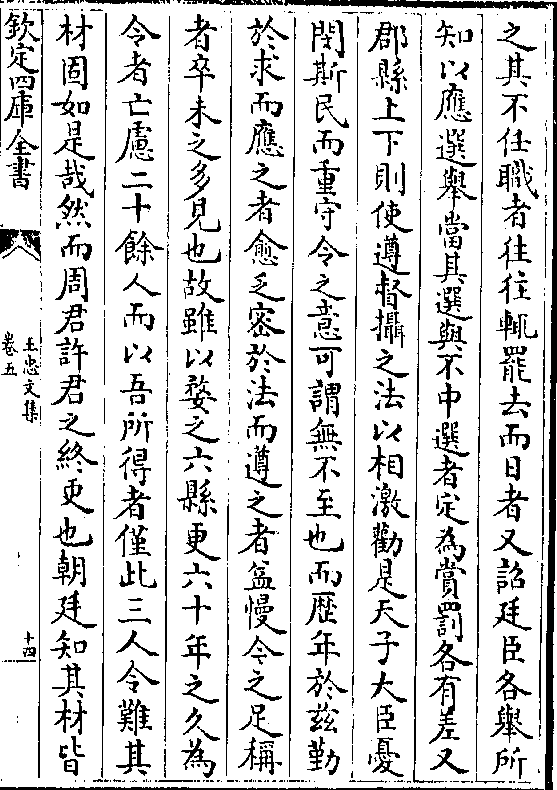 之其不任職者往往輒罷去而日者又詔廷臣各舉所
知以應選舉當其選與不中選者定為賞罰各有差又
郡縣上下則使遵督攝之法以相激勸是天子大臣憂
閔斯民而重守令之意可謂無不至也而歴年於兹勤
於求而應之者愈乏密於法而遵之者益慢令之足稱
者卒未之多見也故雖以婺之六縣更六十年之久為
令者亡慮二十餘人而以吾所得者僅此三人令難其
材固如是哉然而周君許君之終更也朝廷知其材皆
欽定四庫全書
王忠文集
卷五
十四